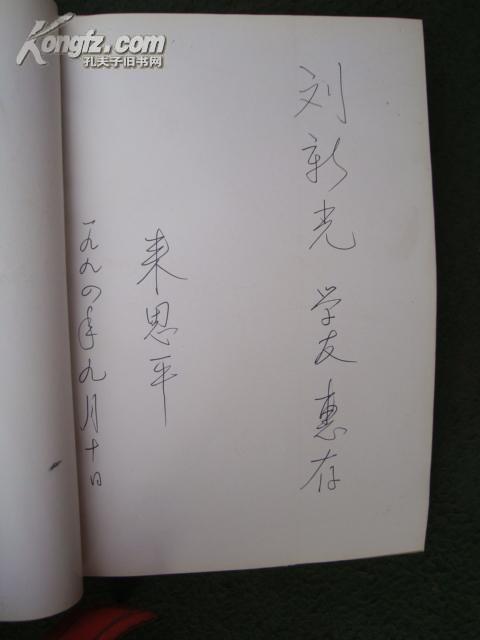 Kongfz.com
孔夫子旧书网
刘新光 学友惠存
来思平
一九九四年九月十日